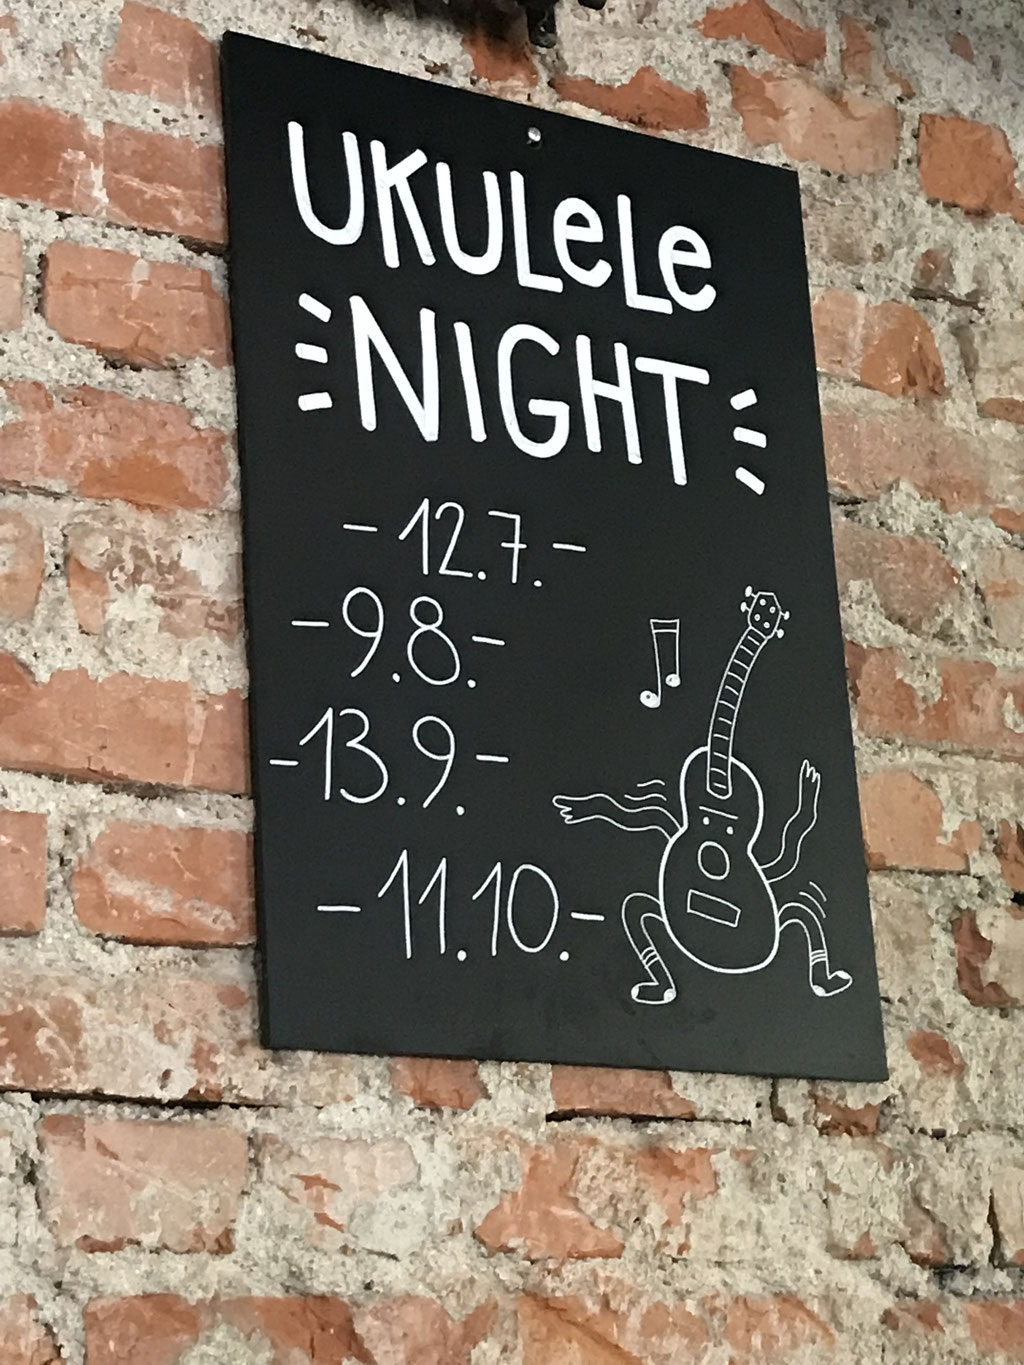 UKULeLe
NIGHT
- 12.7. -
- 9.8. -
- 13.9. -
- 11.10. -